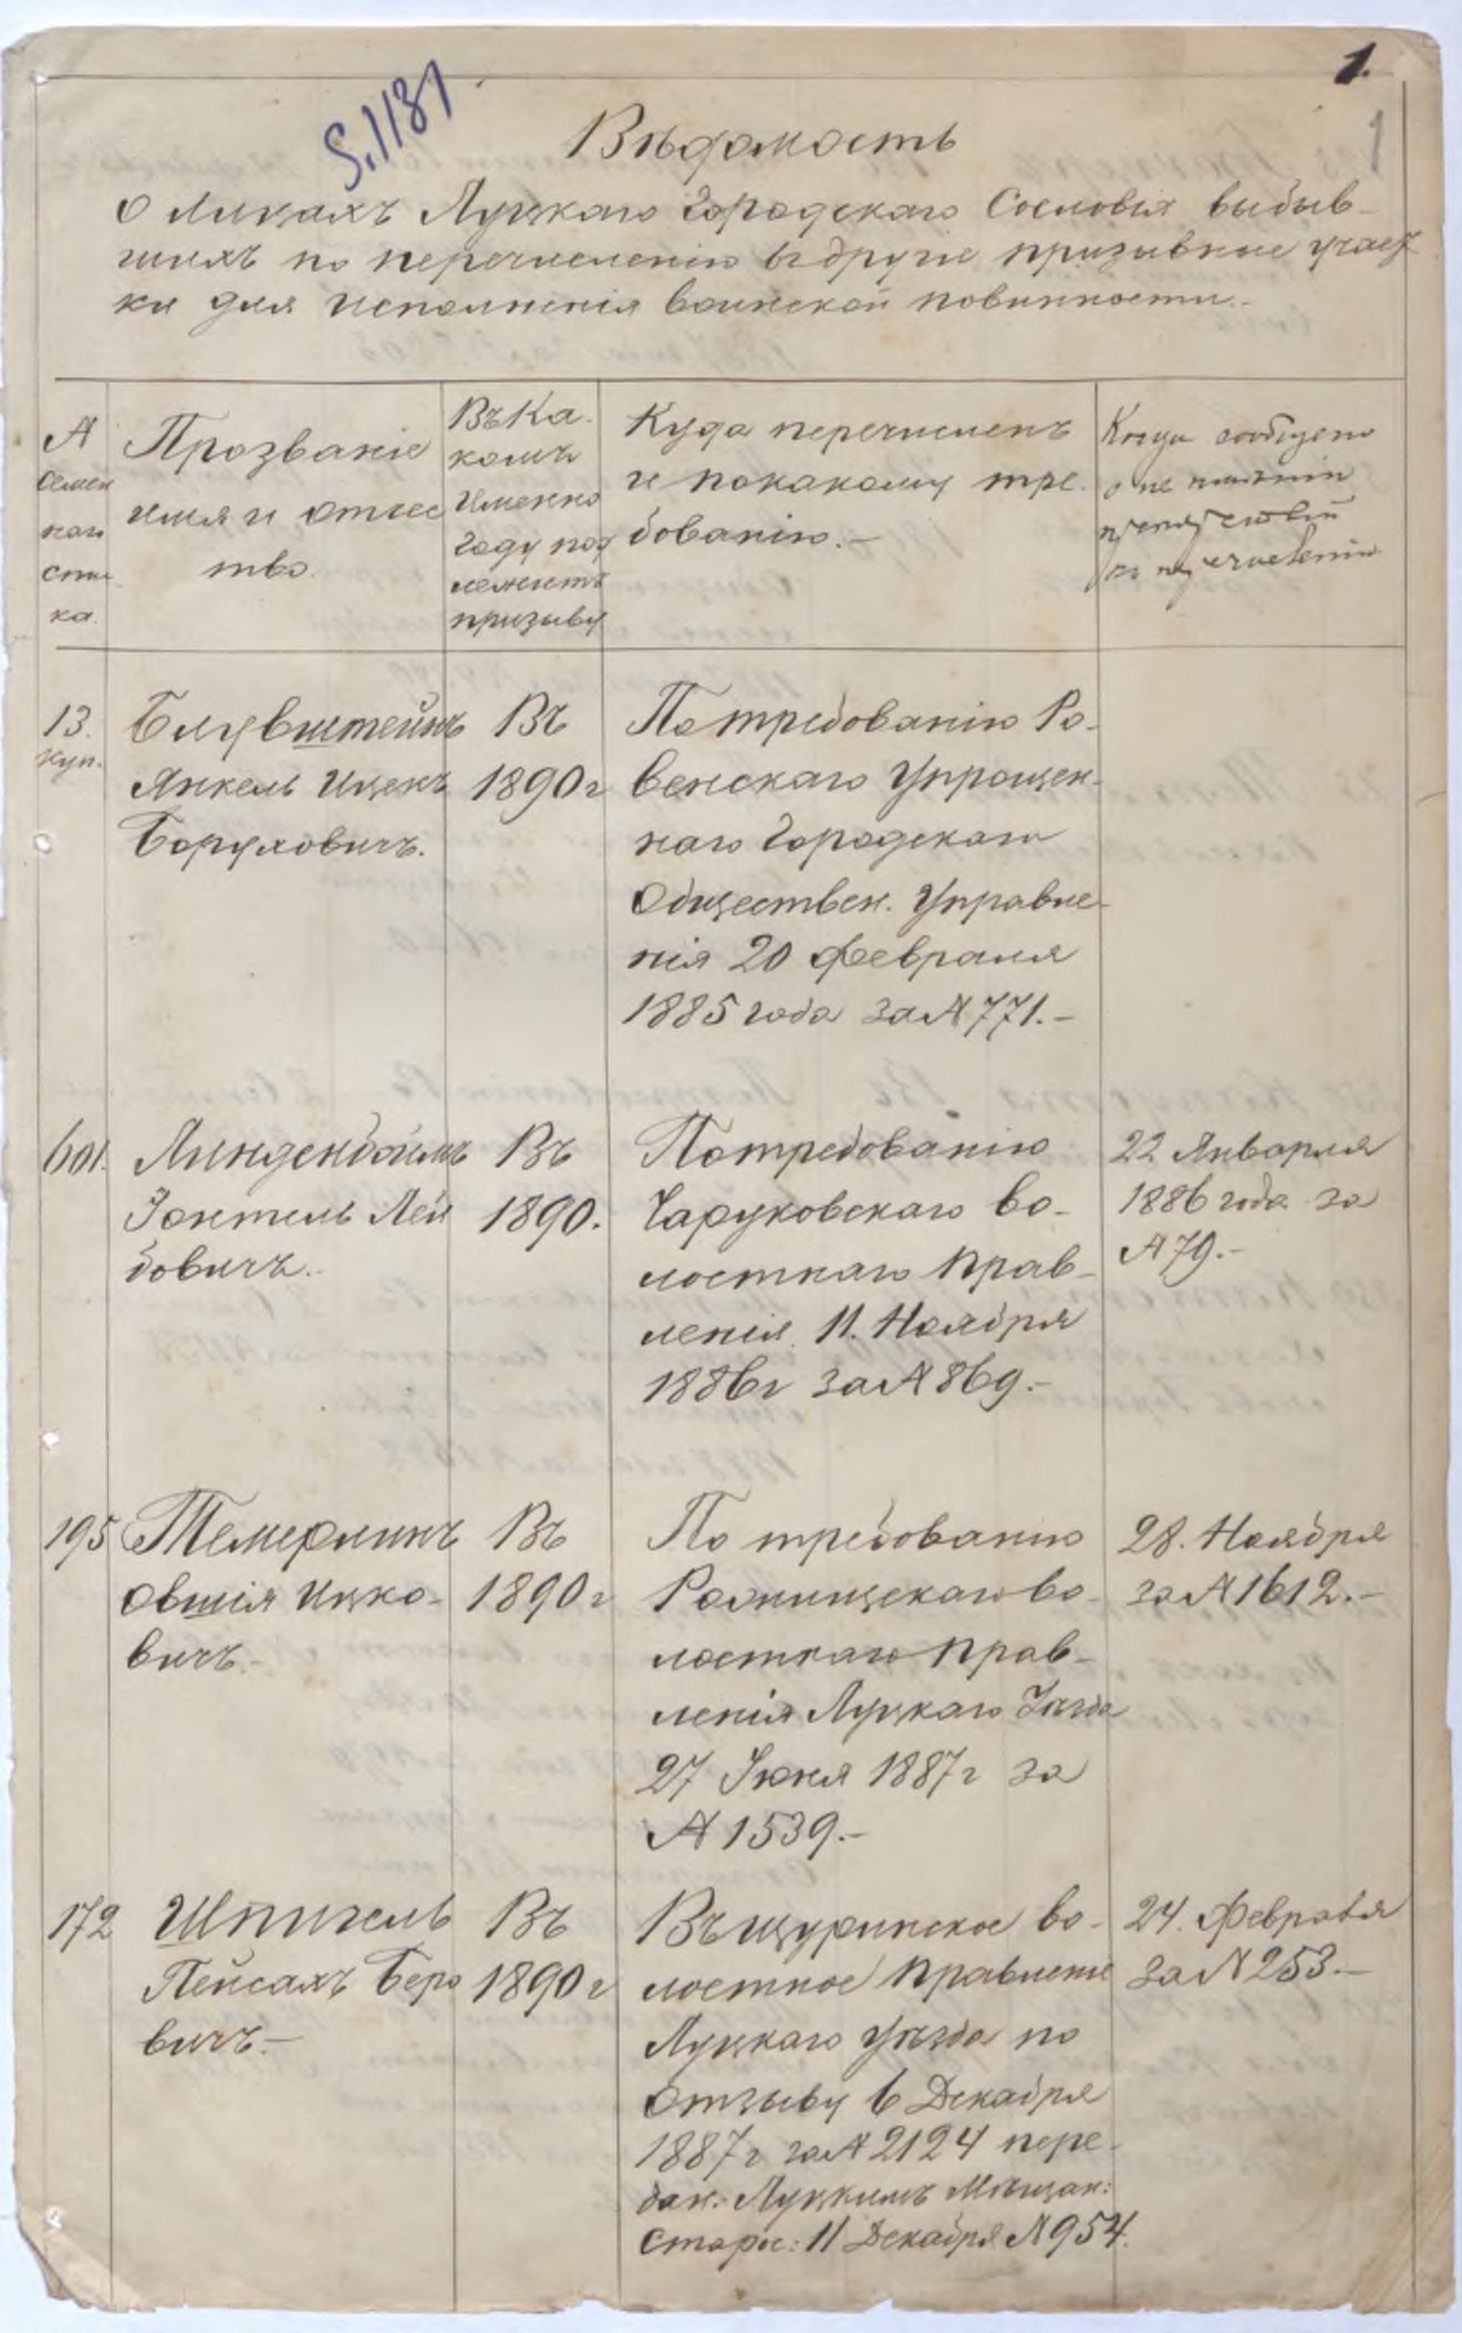 1.
1
S. 1131
Вѣдомость
О лицахъ Луцкаго Городскаго Сословія выбыв-
шихъ по перечисленію въ другіе призывные участ-
ки для исполненія воинской повинности.-
№
семей
наго
спис
ка.
Прозваніе
имя и отчес
тво.
Въ Ка-
комъ
именно
году под
лежитъ
призыву
Куда перечисленъ
и по какому тре-
бованію.-
Когда сообщено
о не имѣніи
препятствій
къ перечисленію
13.
куп.
Блувштейнъ
Янкель Ицекъ
Боруховичъ.
Въ
1890 г
По требованію Ро-
венскаго Упрощен-
наго Городскаго
Обществен. Управле-
нія 20 Февраля
1885 года за № 771.-
601.
Линденбоймъ
Зонтель Лей
бовичъ.-
Въ
1890.
По требованію
Чаруковскаго во-
лостнаго Прав-
ленія 11. Ноября
1886 г за № 869.-
22 Января
1886 года за
№ 79.-
195
Темерлинъ
Овшія Ицко-
вичъ.-
Въ
1890 г
По требованію
Рожищскаго во-
лостнаго Прав-
ленія Луцкаго Уѣзда
27 Іюня 1887 г за
№ 1539.-
28. Ноября
за № 1612.-
172
Шпигель
Пейсахъ Беро
вичъ.-
Въ
1890 г
Въ щуринское во-
лостное Правленіе
Луцкаго уѣзда по
отзыву 6 Декабря
1887 г за № 2124 пере-
дан. Луцкимъ Мѣщан:
Старос: 11 Декабря № 954.
24. Февраля
за № 253.-